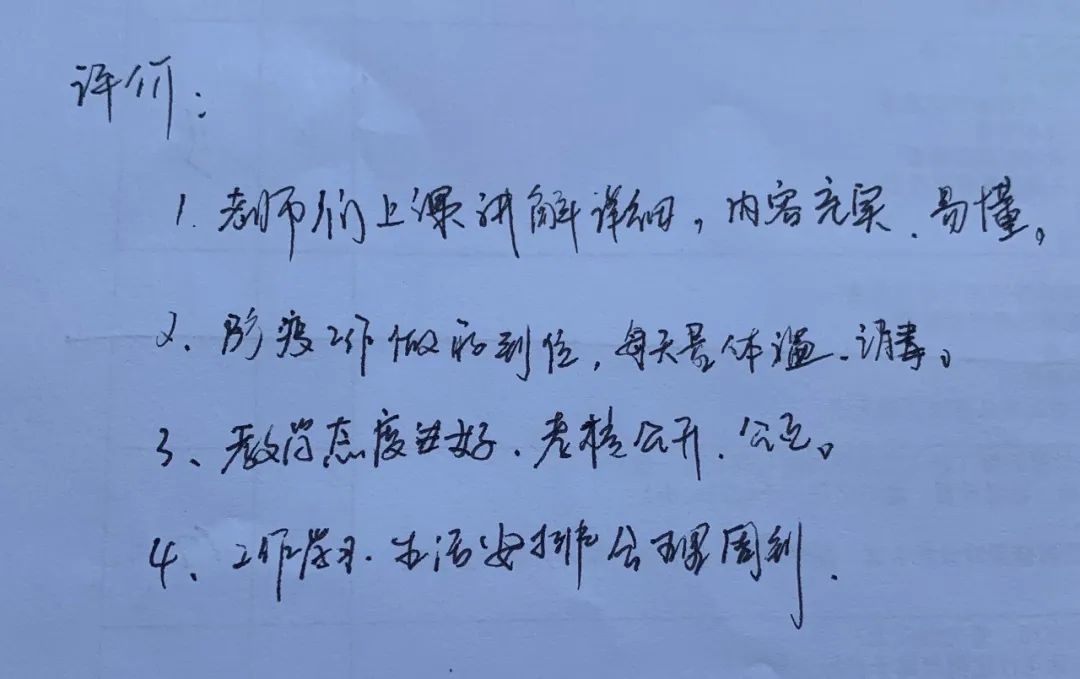 评价:
1. 老师们上课讲解详细,内容充实、易懂。
2、防疫工作做的到位,每天量体温、消毒。
3、教官态度良好、考核公开、公正。
4、工作学习、生活安排合理周到.